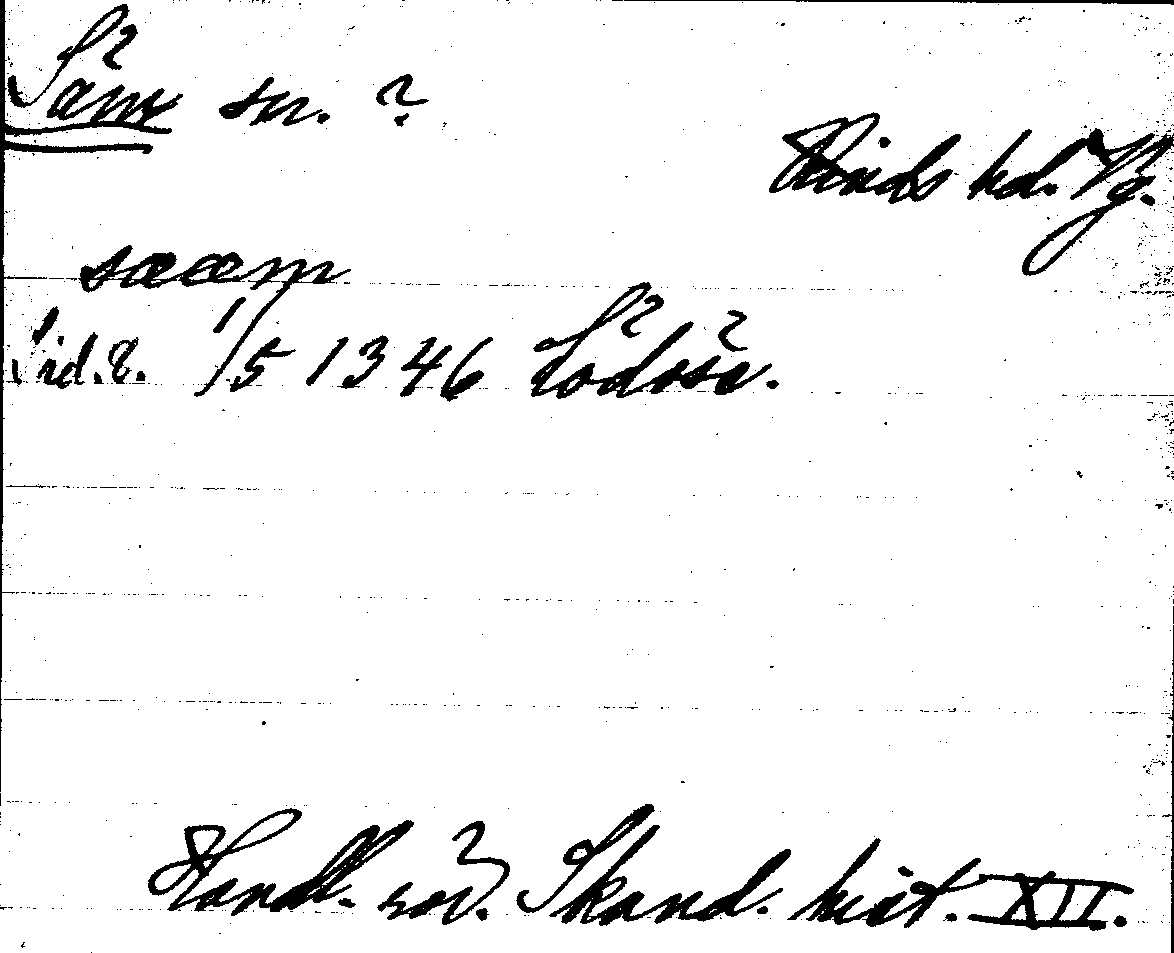 Säm sn. ?
Kinds hd. Vg.
sææm
Sid. 8. 1/5 1346 Lödöse.
Handl. rör. Skand. hist. XII.